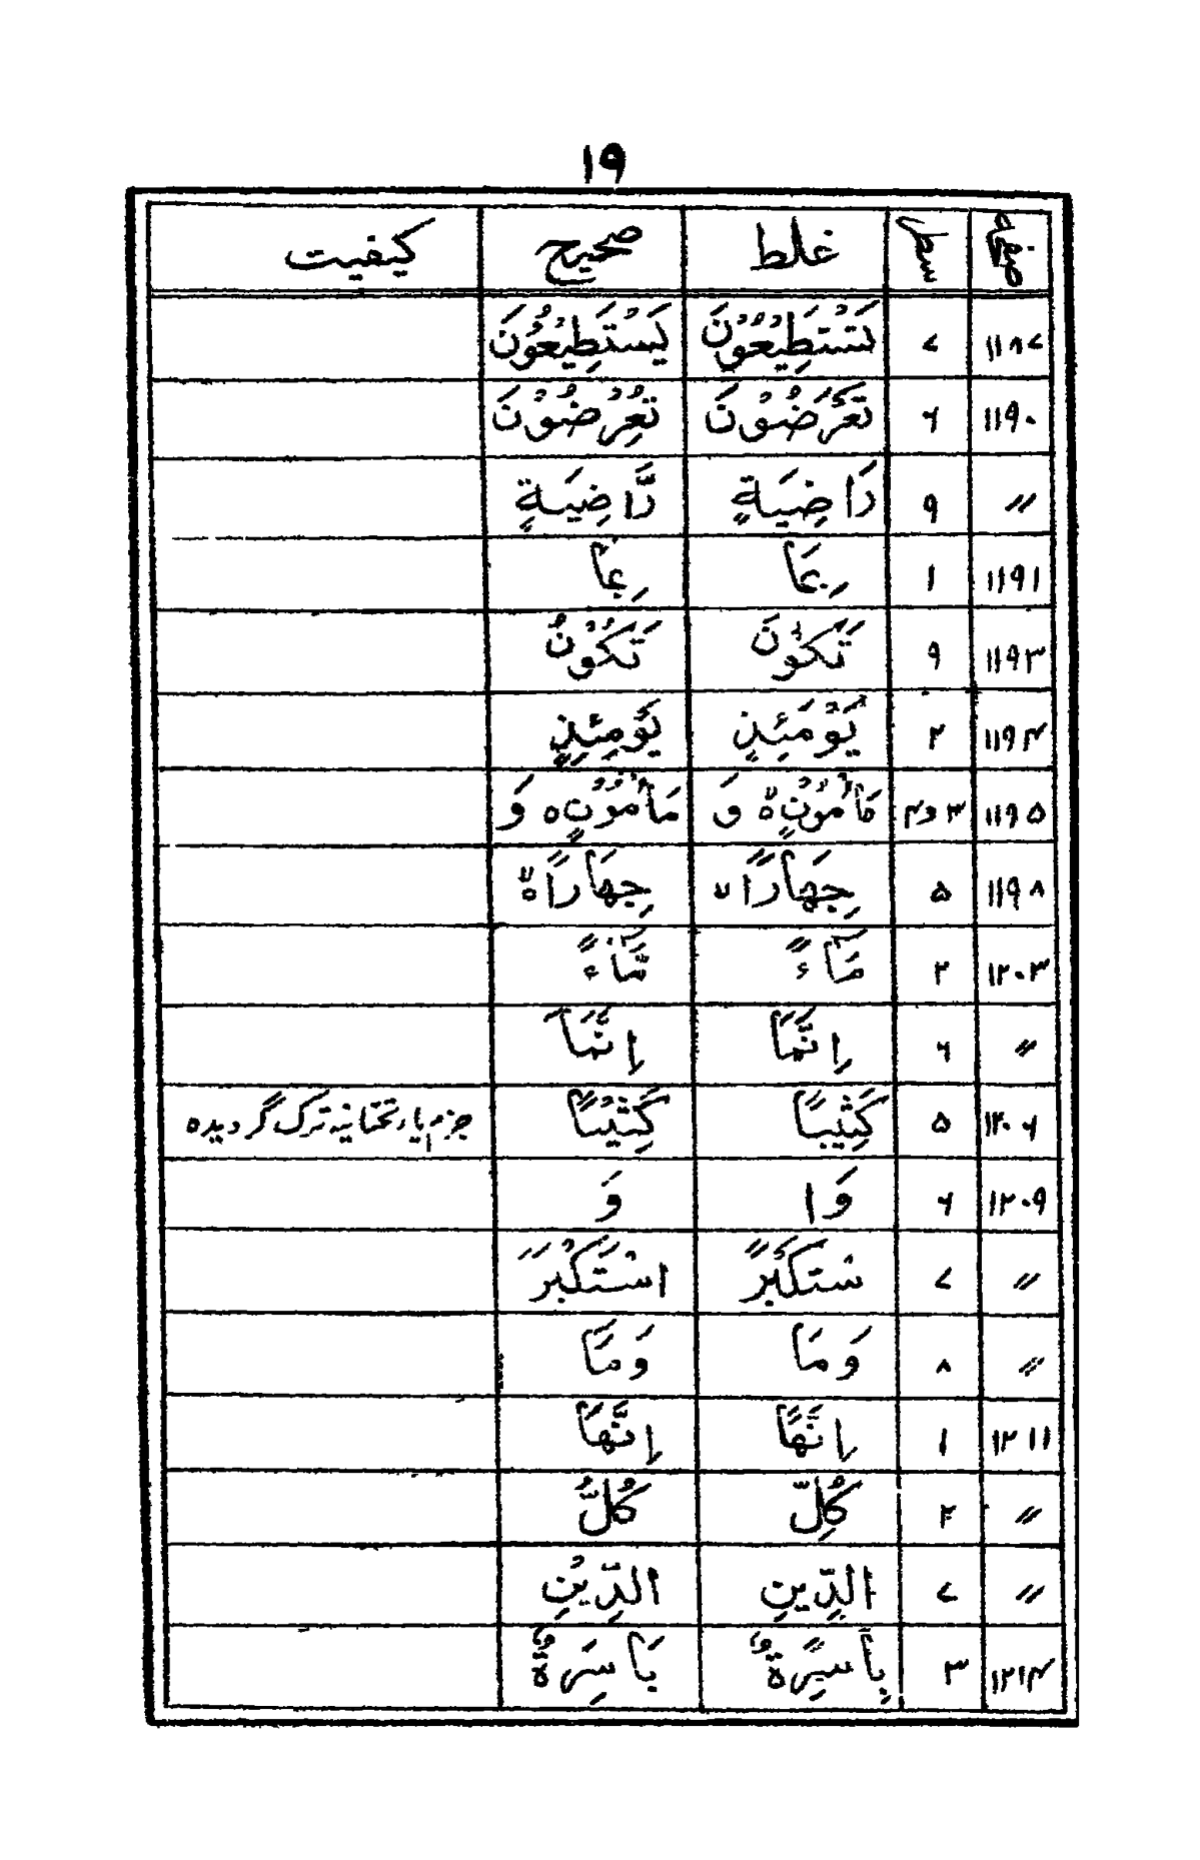 ۱۹
صفحہ سطر غلط صحیح کیفیت
۱۱۸۷ ۷ تَسْتَطِيْعُوْنَ يَسْتَطِيْعُوْنَ
۱۱۹۰ ۶ تَعْرَضُوْنَ تُعْرَضُوْنَ
〃 ۹ رَاضِيَةٍ رَّاضِيَةٍ
۱۱۹۱ ۱
۱۱۹۳ ۹ تَكُوْنَ تَكُوْنُ
۱۱۹۴ ۲ يَّوْمَئِذٍ يَوْمِئِذٍ
۱۱۹۵ ۳ و ۴ مَأْمُوْنٍ ۙ وَ مَأْمُوْنٍ ه وَ
۱۱۹۸ ۵ جِهَارًا ه جِهَارًا ۙ
۱۲۰۳ ۲ مَآءً مَّآءً
〃 ۶ اِنَّمَا اِنَّمَا
۱۲۰۶ ۵ كَثِيْبًا كَثِيْبًا جزم یاء تحتانیه ترک گردیده
۱۲۰۹ ۶ وَا وَ
〃 ۷ سْتَكْبَرَ اسْتَكْبَرَ
〃 ۸ وَمَا وَمَا
۱۲۱۱ ۱ اِنَّهَا اِنَّهَا
〃 ۲ كُلِّ كُلُّ
〃 ۷ الدِّينِ الدِّيْنِ
۱۲۱۴ ۳ بِاسِرَةٌ بَاسِرَةٌ